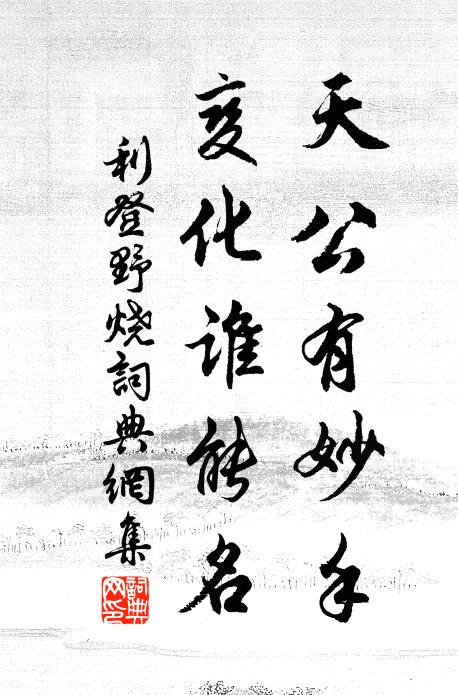 天公有妙手
变化谁能名
利登野烧詞典網集
詞典网印